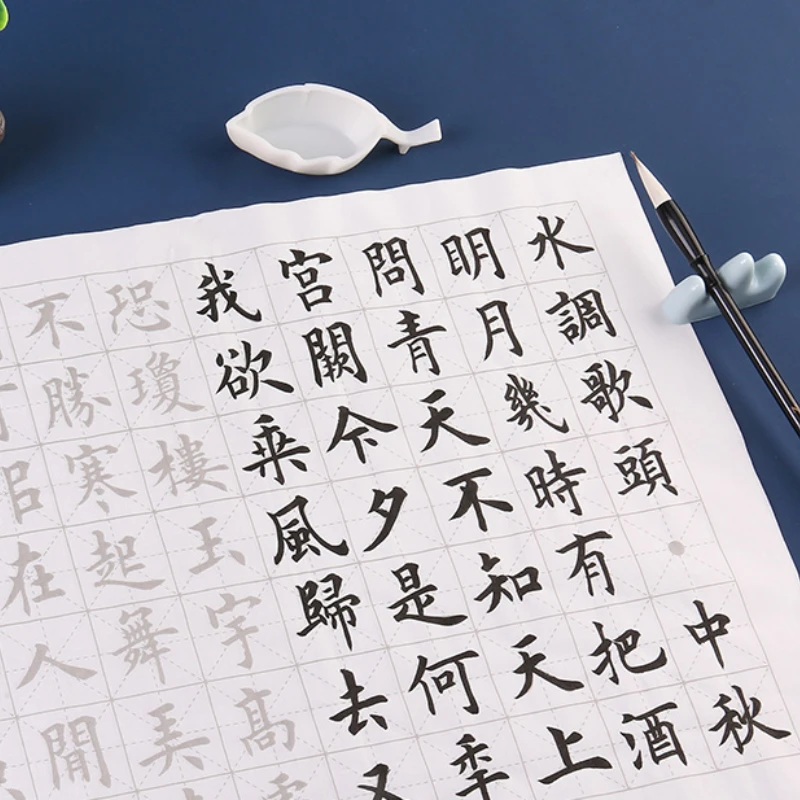 水調歌頭·中秋
明月幾時有把酒
問青天不知天上
宮闕今夕是何秊
我欲乘風歸去又
恐瓊樓玉宇高
不勝寒起舞弄
在人閒